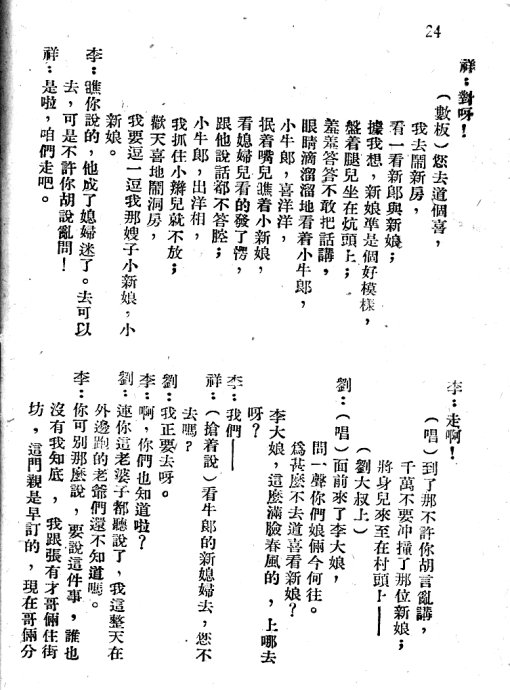 24
祥：對呀！
（數板）您去道個喜，
我去鬧新房，
看一看新郎與新娘；
據我想，新娘準是個好模樣，
盤着腿兒坐在炕頭上；
羞羞答答不敢把話講，
眼睛滴溜溜地看着小牛郎，
小牛郎，喜洋洋，
抿着嘴兒瞧着小新娘，
看媳婦兒看的發了愣，
跟他說話都不答腔；
小牛郎，出洋相，
我抓住小辮兒就不放；
歡天喜地鬧洞房，
我要逗一逗我那嫂子小新娘，小
新娘。
李：瞧你說的，他成了媳婦迷了。去可以
去，可是不許你胡說亂問！
祥：是啦，咱們走吧。
李：走啊！
（唱）到了那不許你胡言亂講，
千萬不要冲撞了那位新娘；
將身兒來至在村頭上——
（劉大叔上）
劉：（唱）面前來了李大娘，
問一聲你們娘倆今何往。
爲甚麼不去道喜看新娘？
李大娘，這麼滿臉春風的，上哪去
呀？
李：我們——
祥：（搶着說）看牛郎的新媳婦去，您不
去嗎？
劉：我正要去呀。
李：啊，你們也知道啦？
劉：連你這老婆子都聽說了，我這整天在
外邊跑的老爺們還不知道嗎。
李：你可別那麼說，要說這件事，誰也
沒有我知底，我跟張有才哥倆住街
坊，這門親是早訂的，現在哥倆分